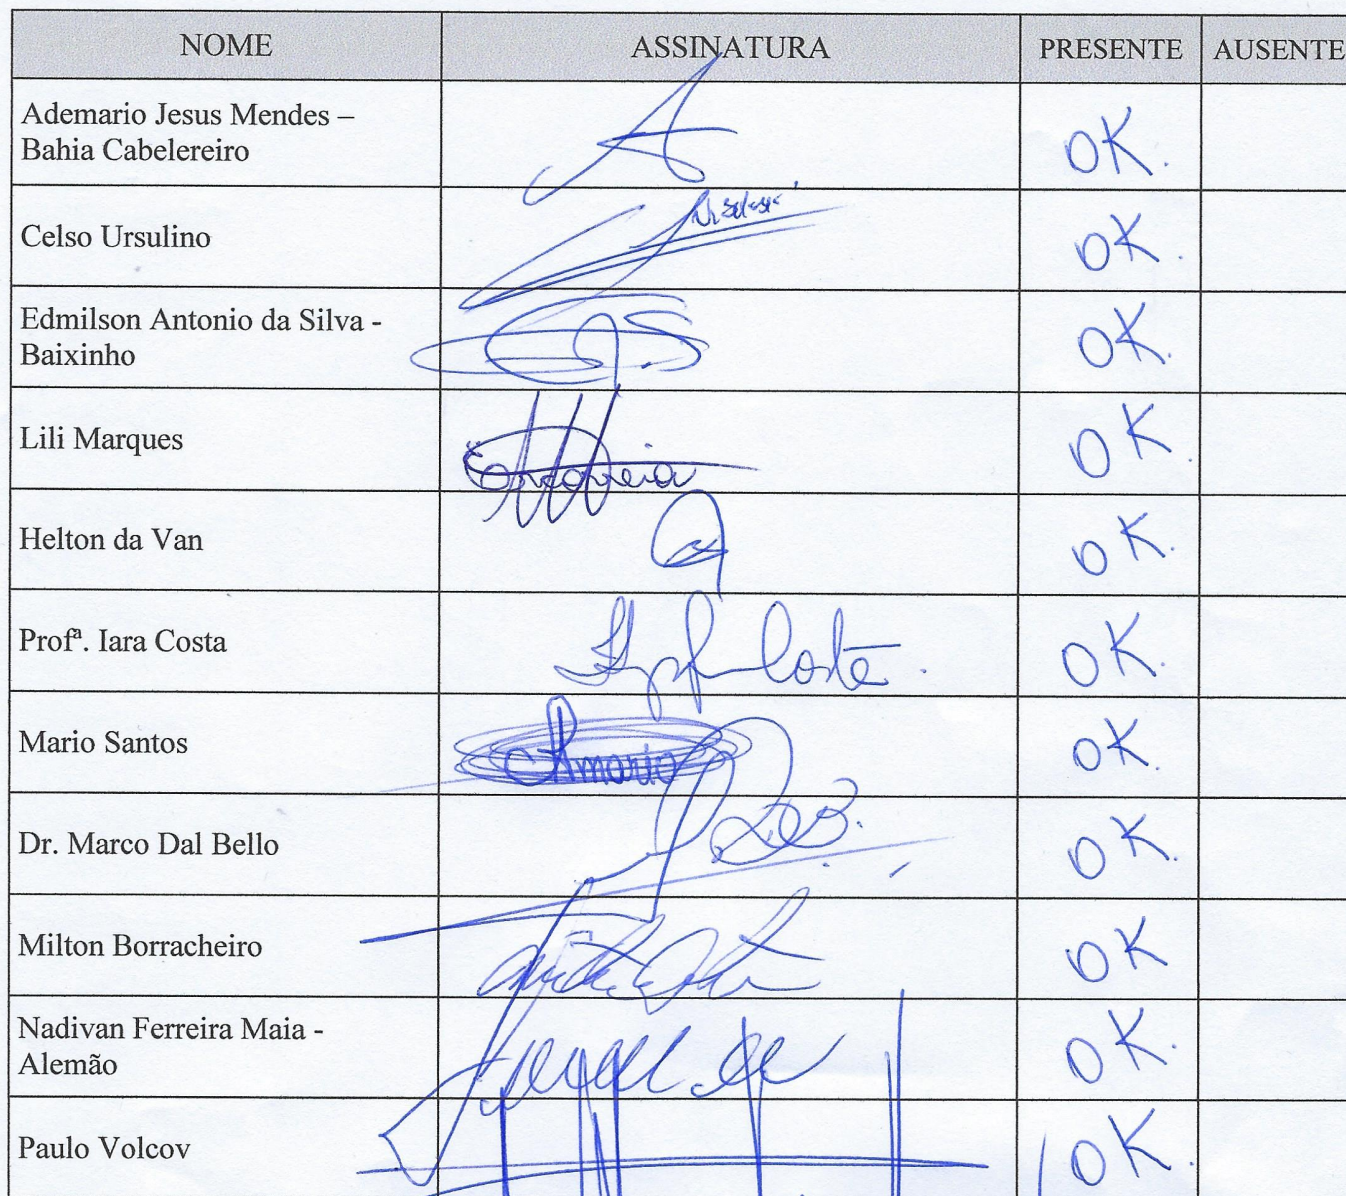 NOME ASSINATURA PRESENTE AUSENTE
Ademario Jesus Mendes –
Bahia Cabelereiro
OK.
Celso Ursulino
OK.
Edmilson Antonio da Silva -
Baixinho
OK.
Lili Marques
OK.
Helton da Van
OK.
Profª. Iara Costa
Costa
OK.
Mario Santos
Amario
OK.
Dr. Marco Dal Bello
OK.
Milton Borracheiro
OK
Nadivan Ferreira Maia -
Alemão
OK.
Paulo Volcov
OK.